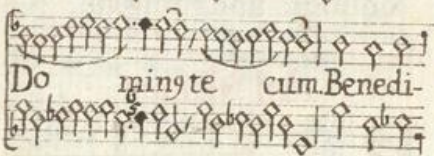 Do ming te cum. Benedi-
6
5